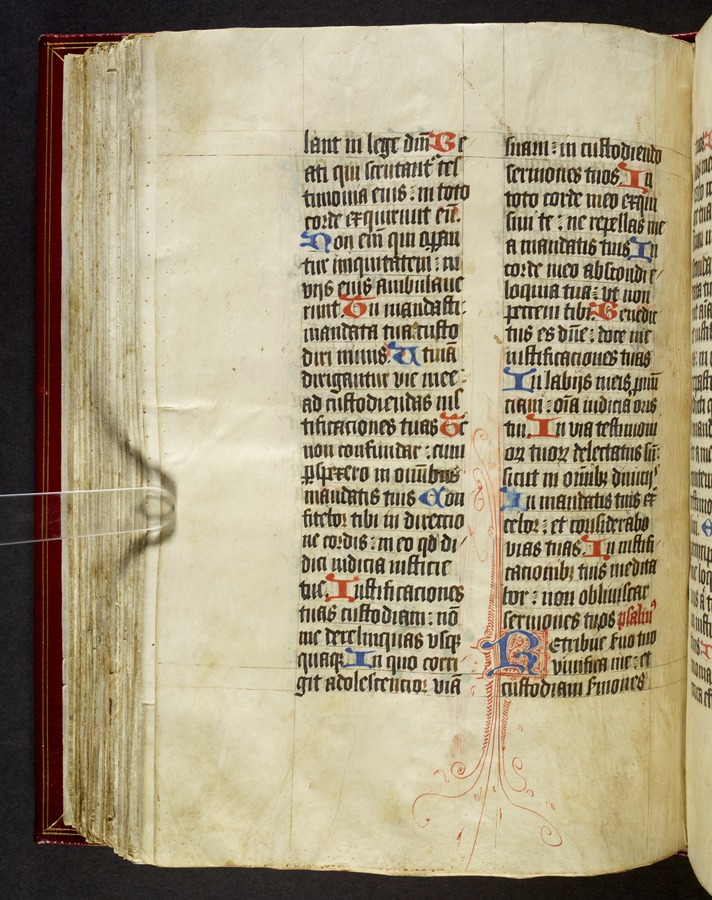 lant in lege dn̄i Be
ati qui scrutant᷑ tes
timonia eius : in toto
corde exquirunt eū.
Non em̄ qui oꝑan
tur iniquitatem : in
vijs eius ambulaue
runt. Tu mandasti :
mandata tua custo
diri nimis. Utinā
dirigantur vie mee :
ad custodiendas ius
tificationes tuas Tc̄
non confundar : cum
ꝑspexero in omībus
mandatis tuis Con
fitebor tibi in directio
ne cordis : in eo qd̄ di /
dici iudicia iusticie
tue. Iustificationes
tuas custodiam : nō
me derelinquas vsqꝫ
quaqꝫ. In quo corri
git adolescentior viā
suam : in custodiendo
sermones tuos. In
toto corde meo exqui
siui te : ne repellas me
a mandatis tuis In
corde meo abscondi e /
loquia tua : vt non
peccem tibi. Benedic
tus es dn̄e : doce me
iustificationes tuas
In labijs meis ꝓnū
ciaui : oīa iudicia oris
tui. In via testimoni
oꝝ tuoꝝ delectatus sū :
sicut in omībꝫ diuicijs
In mandatis tuis ex̄
cebor : et considerabo
vias tuas. In iustifi
cationibꝫ tuis medita
bor : non obliuiscar
sermones tuos psalm᷒
Retribue s̄uo tuo
viuifica me : et
custodiam s̄mones